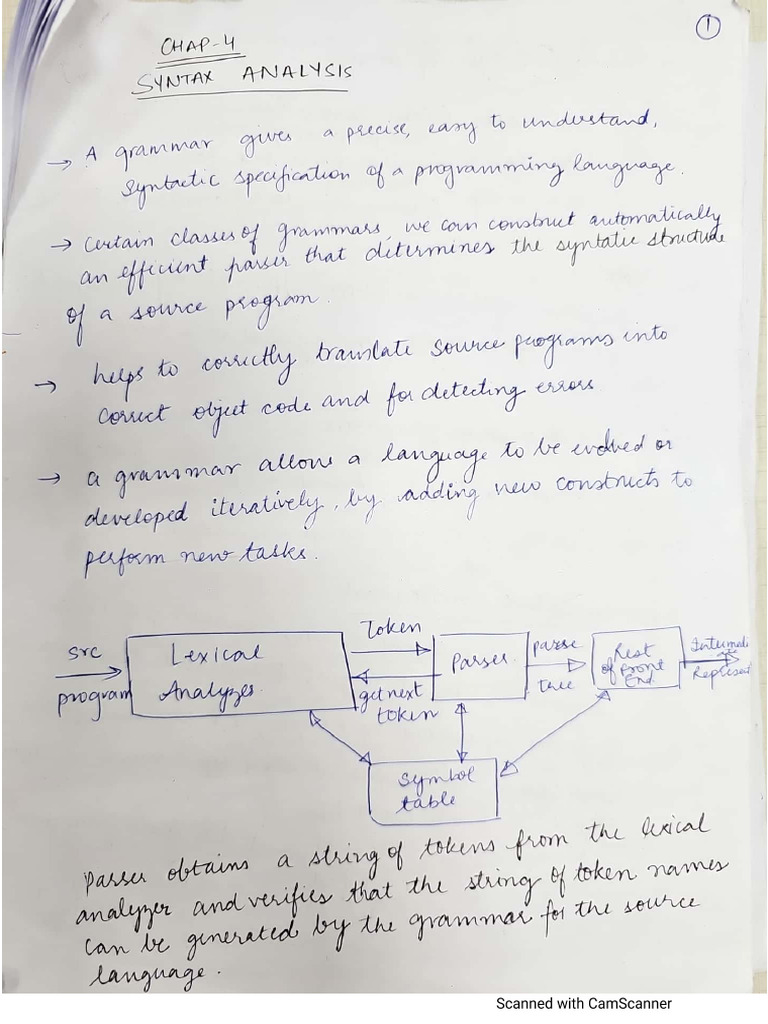 1
CHAP-4
SYNTAX ANALYSIS
→ A grammar gives a precise, easy to understand,
syntactic specification of a programming language.
→ Certain classes of grammars, we can construct automatically
an efficient parser that determines the syntatic structure
of a source program.
→ helps to correctly translate source programs into
correct object code and for detecting errors.
→ a grammar allows a language to be evolved or
developed iteratively, by adding new constructs to
perform new tasks.
src
program
Lexical
Analyzer
Token
get next
token
Parser
parse
tree
Rest
of Front
End
Intermedi
Represent
Symbol
table
Parser obtains a string of tokens from the lexical
analyzer and verifies that the string of token names
can be generated by the grammar for the source
language.
Scanned with CamScanner